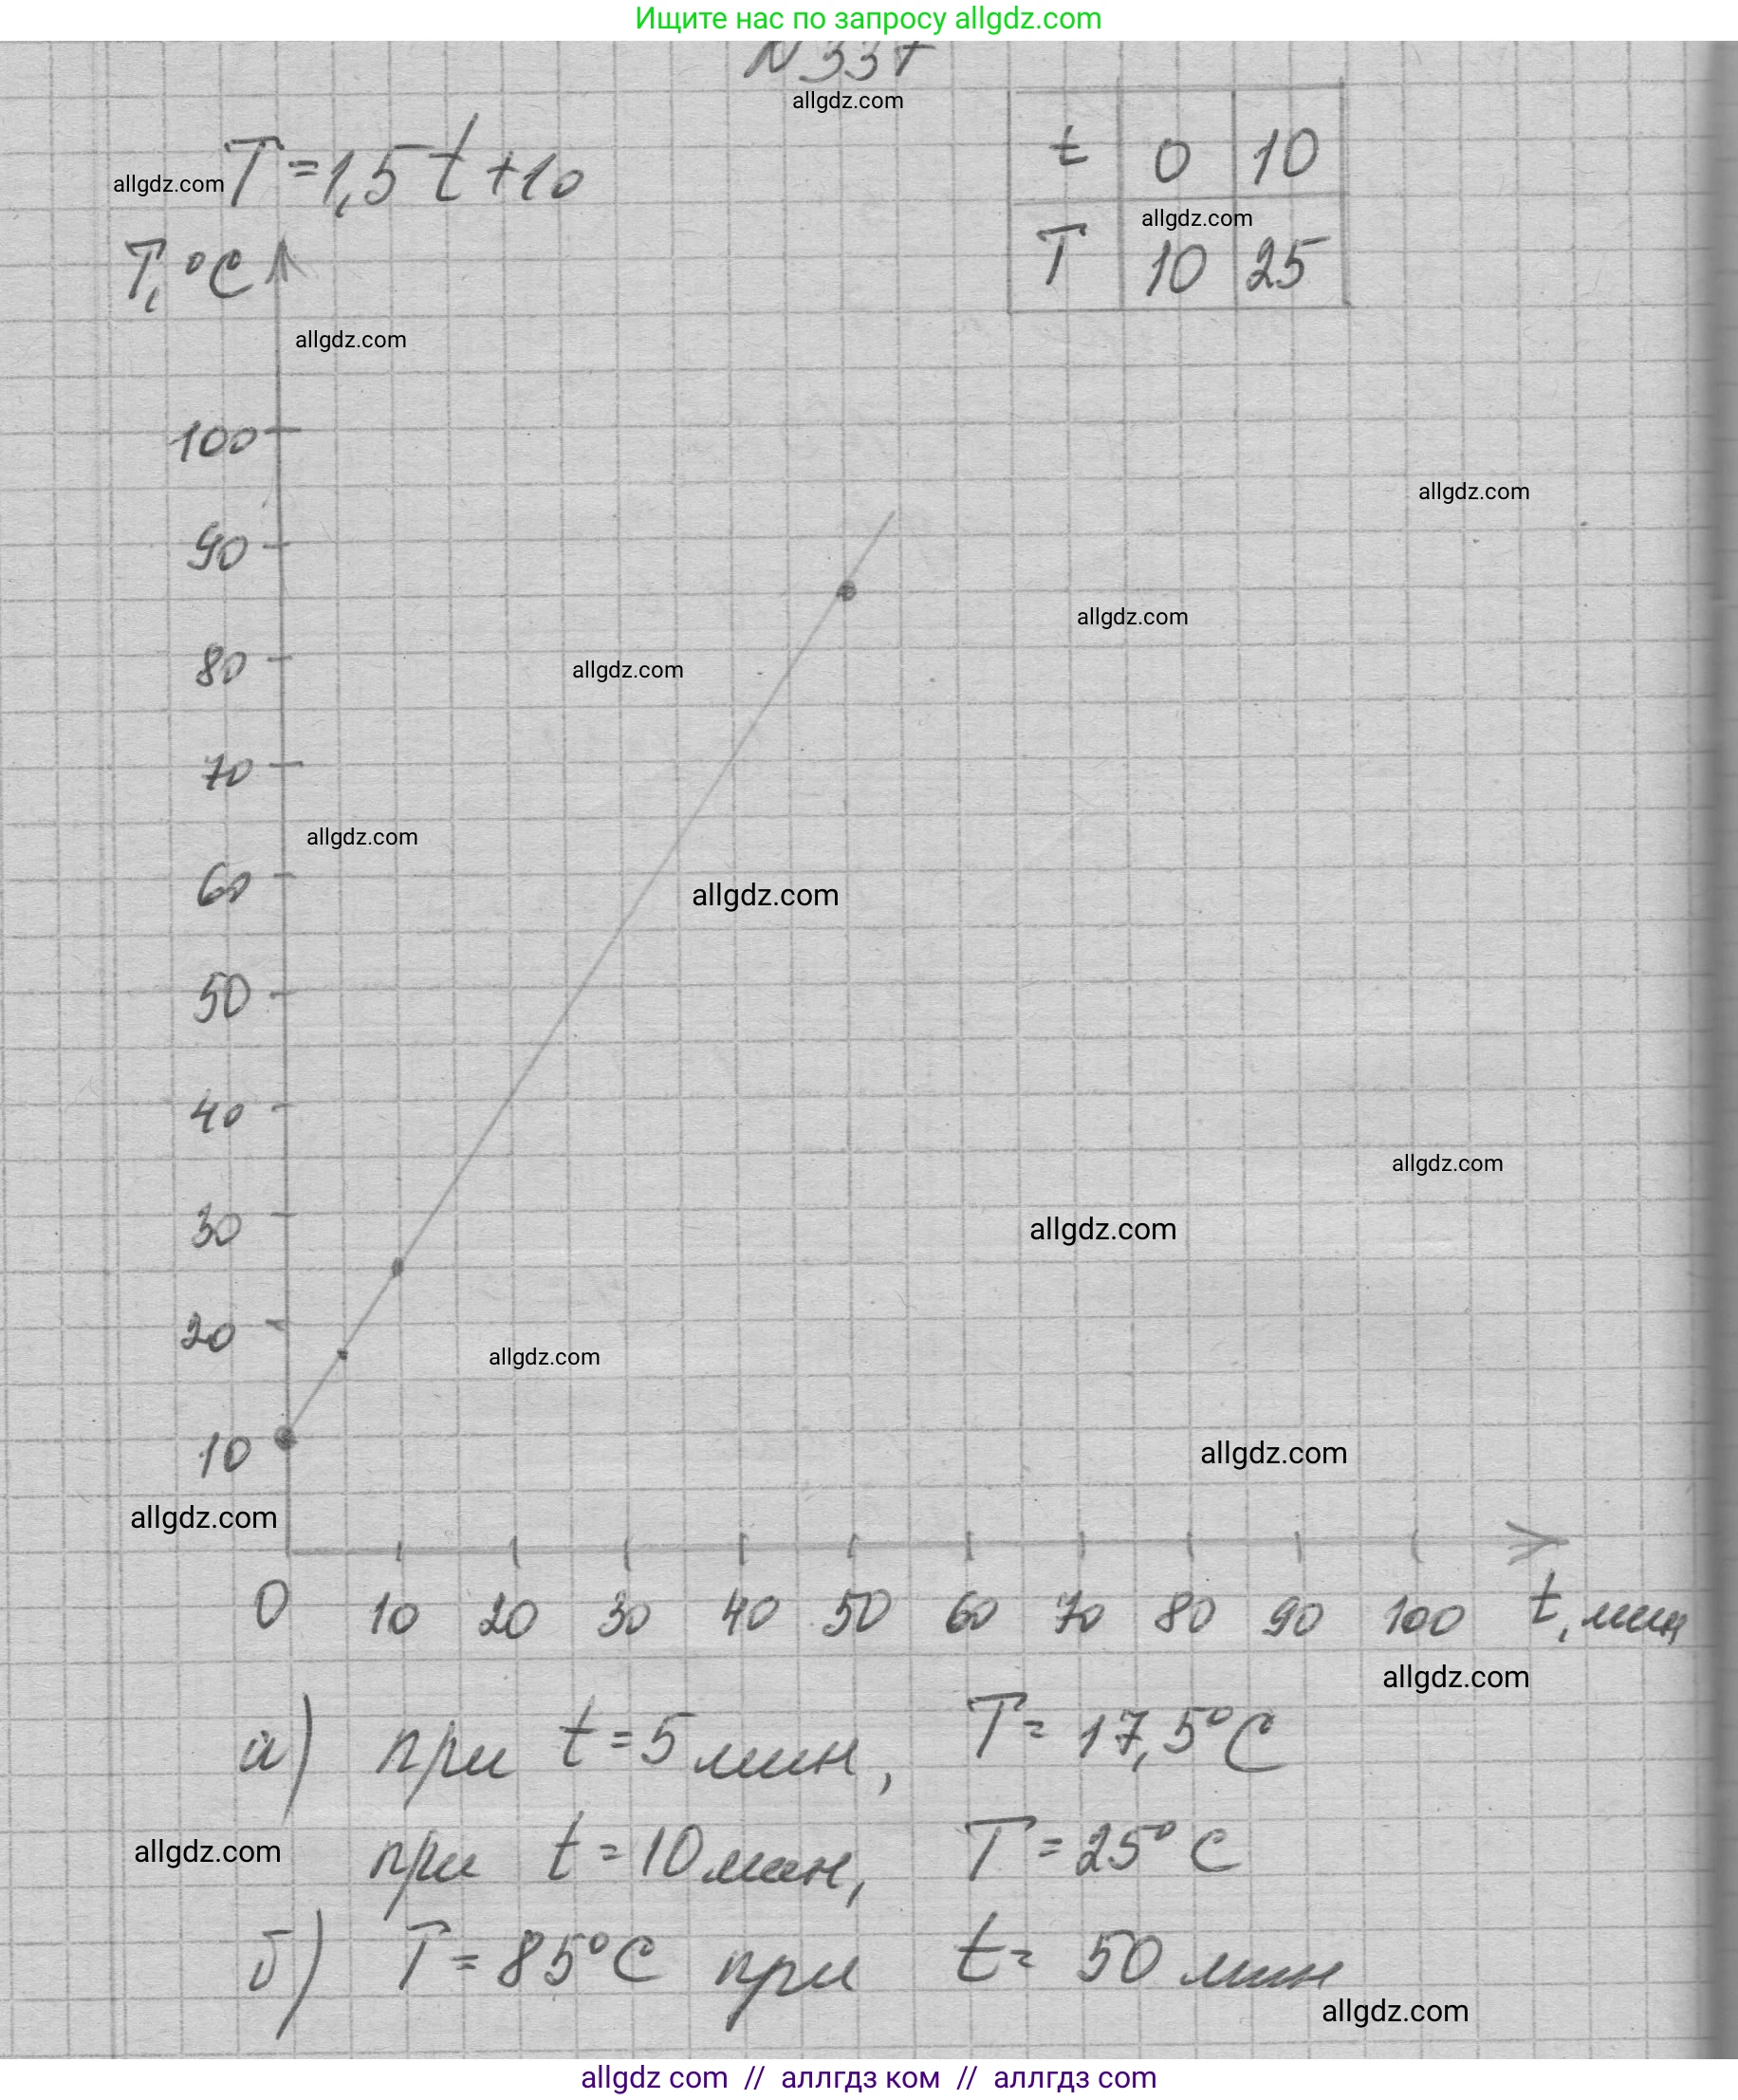 Ищите нас по запросу allgdz.com
N 337
allgdz.com
t 0 10
allgdz.com T=1,5t+10
allgdz.com
T 10 25
T,°C
allgdz.com
100
allgdz.com
90
allgdz.com
80
allgdz.com
70
allgdz.com
60
allgdz.com
50
40
allgdz.com
30
allgdz.com
20
allgdz.com
10
allgdz.com
allgdz.com
0 10 20 30 40 50 60 70 80 90 100 t, мин
allgdz.com
а) при t=5 мин, T=17,5°C
allgdz.com
при t=10 мин, T=25°C
б) T=85°C при t=50 мин
allgdz.com
allgdz com // аллгдз ком // аллгдз com